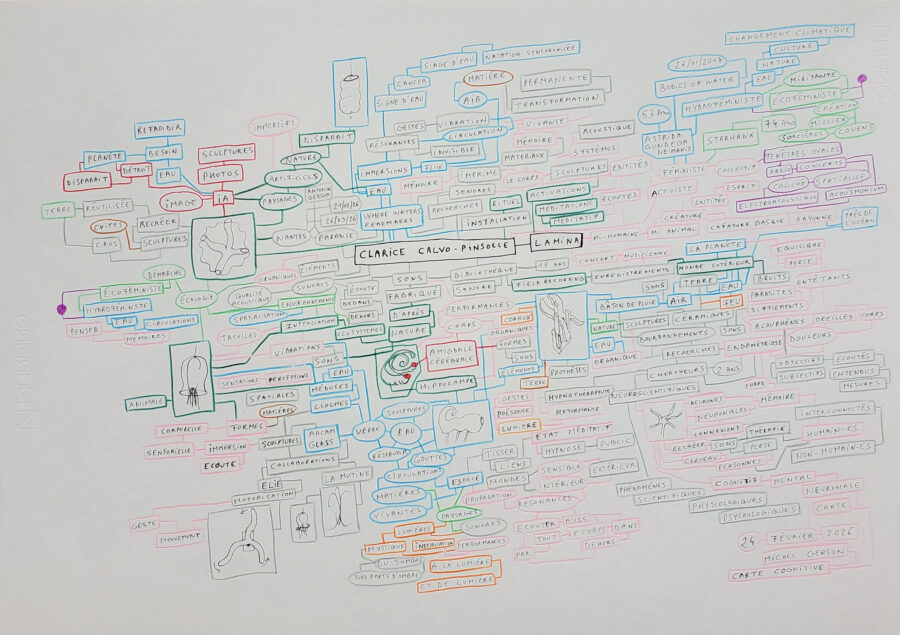 CHANGEMENT CLIMATIQUE
CULTURE
NATURE
EAU
26/01/2017
BODIES OF WATER
HYDROFÉMINISTE
53 ANS
ASTRIDA
NEIMANIS
MILITANTE
ECOFÉMINISTE
CRÉATION
STARHAWK
74 ANS
SORCIÈRES
COVENS
SINGE D'EAU
NATATION SYNCHRONISÉE
CANCER
SIGNE D'EAU
MATIÈRE
PERMANENTE
TRANSFORMATION
AIR
GESTES
VIBRATION
CIRCULATION
RÉSONANCES
INVISIBLE
IMMERSIONS
FLUX
EAU
MÉMOIRE
IMPRIME
LE CORPS
VIVANTE
MÉMOIRE
MATÉRIAUX
ACOUSTIQUE
SYSTÈMES
SCULPTURES
ENTITÉS
SONORES
RITUEL
RECHERCHES
INSTALLATION
WHERE WATERS
REMEMBERS
ACTIVATIONS
MÉDITATIONS
MÉDITATIF
ÉCOUTES
FÉMINISTE
COLLECTIF
ACTIVISTE
ENTITÉE
ESPRIT
CRÉATURE
MI-HUMAINE
MI ANIMAL
CRÉATURE BASQUE
BAYONNE
PRÈS DE
L'OCÉAN
RADIO
CONCERTS
COUCHÉ
SPATIALISÉ
ELECTROACOUSTIQUE
ACOUSMONIUM
REFROIDIR
PLANÈTE
BESOIN
DISPARAIT
DÉTRUIT
EAU
SCULPTURES
PHOTOS
IMAGE
IA
IMMERSIFS
DISPARAIT
NATURE
ARTIFICIELS
PAYSAGES
NANTES
PARADISE
TERRE
RÉUTILISÉE
CUITES
CRUS
RECRÉER
SCULPTURES
CLARICE CALVO-PINSOLLE
LAMINA
BIBLIOTHÈQUE
SONORE
15 ANS
FIELD RECORDING
CONCERT
MUSICIENNE
ENREGISTREMENTS
MONDE EXTÉRIEUR
LA PLANÈTE
SONS
TERRE
EAU
AIR
FEU
ÉQUILIBRE
PERTE
BRUITS
ENTÊTANTS
PARASITES
SIFFLEMENTS
ACOUPHÈNES
OREILLES
CORPS
BOURDONNEMENTS
SONS
ENDOMÉTRIOSE
DOULEURS
DÉMARCHE
ECOFÉMINISTE
HYDROFÉMINISTE
ÉCOLOGIE
PENSER
EAU
CIRCULATIONS
MÉMOIRES
CÉRAMIQUES
ÉLÉMENTS
QUALITÉ
ACOUSTIQUE
SONORES
ENVIRONNEMENTS
SPATIALISATION
TACTILES
INSTALLATION
ECOSYSTÈMES
ÉCOUTE
DEDANS
DEHORS
SONS
FABRIQUE
D'APRÈS
NATURE
PERFORMANCES
CORPS
AMYGDALE
CÉRÉBRALE
HIPPOCAMPE
CORAUX
ORGANIQUES
FORMES
SONS
ÉLÉMENTS
TERRE
BÂTON DE PLUIE
NATURE
SCULPTURES
CÉRAMIQUES
EAU
ORGANIQUE
PROTHÈSES
RECHERCHES
CHERCHEURS
2 ANS
NEUROSCIENTIFIQUES
OBJECTIFS
SUBJECTIFS
ÉCOUTES
ENTENDUS
MESURES
CORPS
MÉMOIRE
NEURONES
NEURONALES
CONNEXIONS
RECRÉER
SONS
CERVEAU
THÉRAPIE
PERTE
PERSONNES
INTERCONNECTÉS
HUMAIN-ES
NON-HUMAIN-ES
VIBRATIONS
SONS
EAU
SENSATIONS
PERCEPTIONS
SPATIALES
MÉDUSES
CLOCHES
MATIÈRES
ANIMALE
FORMES
CORPORELLE
SENSORIELLE
IMMERSION
ÉCOUTE
SCULPTURES
ARCAM
GLASS
COLLABORATIONS
ELIE
LA MUTINE
MOTORISATION
GESTE
MOUVEMENT
VERRE
RÉSERVOIR
SCULPTURES
EAU
GOUTTES
CIRCULATIONS
MATIÈRES
VIVANTES
ESPACE
PAYSAGES
SONORES
LUMIÈRES
MYSTIQUE
INSTALLATION
PERFORMANCES
DU SOMBRE
NOS PARTS D'OMBRE
À LA LUMIÈRE
ET DE LUMIÈRE
GESTES
PRÉSENCE
LUMIÈRE
HYPNOTHÉRAPEUTE
PERFORMANCE
ETAT MÉDITATIF
TISSER
LIENS
MONDES
HYPNOSE
PUBLIC
SENSIBLE
INTÉRIEUR
EXTÉRIEUR
PROPAGATION
RÉSONANCES
ÉCOUTER
AVEC
TOUT
LE CORPS
DANS
DEHORS
PAR
PHÉNOMÈNES
SCIENTIFIQUES
COGNITIF
MENTAL
PHYSIOLOGIQUES
PSYCHOLOGIQUES
NEURONALE
CARTE
24 FÉVRIER 2026
MICHEL GERSON
CARTE COGNITIVE